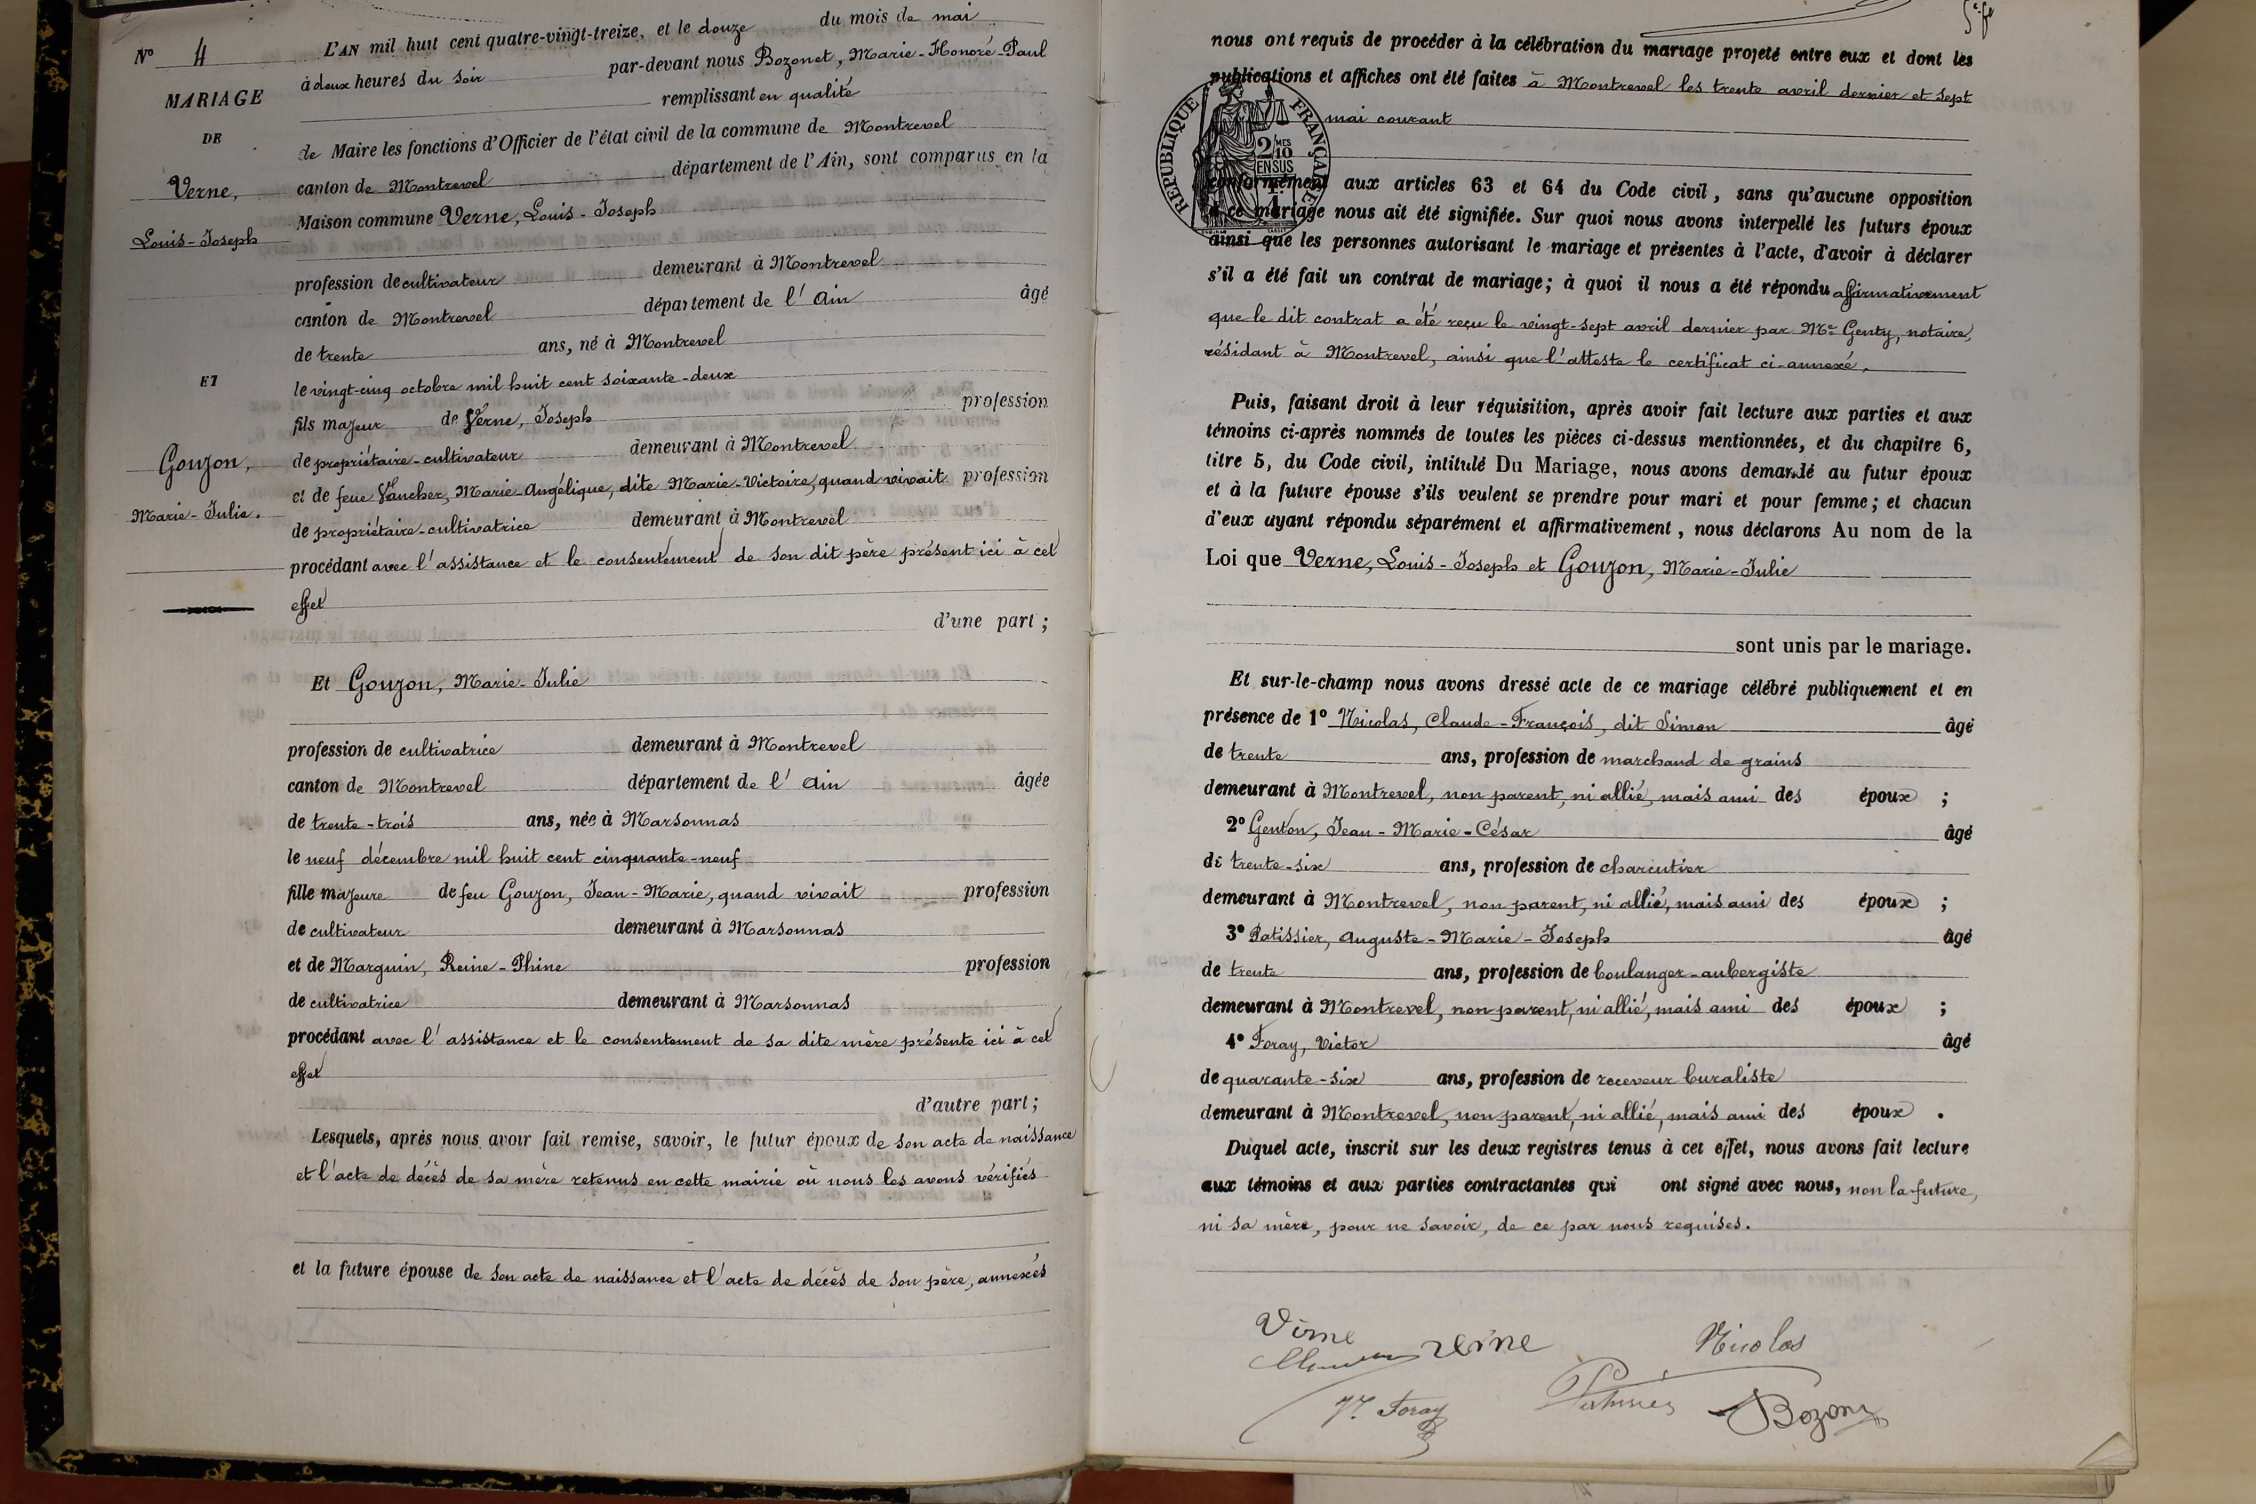 No 4
MARIAGE
DE
Verne,
Louis-Joseph
ET
Gouzon,
Marie-Julie.
L'AN mil huit cent quatre-vingt-treize, et le douze du mois de mai
à deux heures du soir par-devant nous Bozonet, Marie-Honoré-Paul
remplissant en qualité
de Maire les fonctions d'Officier de l'état civil de la commune de Montrevel
canton de Montrevel département de l'Ain, sont comparus en la
Maison commune Verne, Louis-Joseph
profession de cultivateur demeurant à Montrevel
canton de Montrevel département de l'Ain âgé
de trente ans, né à Montrevel
le vingt-cinq octobre mil huit cent soixante-deux
fils majeur de Verne, Joseph profession
de propriétaire-cultivateur demeurant à Montrevel
et de feue Vancher, Marie-Angélique, dite Marie-Victoire, quand vivait profession
de propriétaire-cultivatrice demeurant à Montrevel
procédant avec l'assistance et le consentement de son dit père présent ici à cet
effet
d'une part ;
Et Gouzon, Marie-Julie
profession de cultivatrice demeurant à Montrevel
canton de Montrevel département de l'Ain âgée
de trente-trois ans, née à Marsonnas
le neuf décembre mil huit cent cinquante-neuf
fille majeure de feu Gouzon, Jean-Marie, quand vivait profession
de cultivateur demeurant à Marsonnas
et de Marguin, Reine-Phine profession
de cultivatrice demeurant à Marsonnas
procédant avec l'assistance et le consentement de sa dite mère présente ici à cet
effet
d'autre part ;
Lesquels, après nous avoir fait remise, savoir, le futur époux de son acte de naissance
et l'acte de décès de sa mère retenus en cette mairie où nous les avons vérifiés
et la future épouse de son acte de naissance et l'acte de décès de son père, annexés
nous ont requis de procéder à la célébration du mariage projeté entre eux et dont les
publications et affiches ont été faites à Montrevel les trente avril dernier et sept
mai courant
REPUBLIQUE FRANÇAISE
2 MES
10
EN SUS
conformément aux articles 63 et 64 du Code civil, sans qu'aucune opposition
à ce mariage nous ait été signifiée. Sur quoi nous avons interpellé les futurs époux
ainsi que les personnes autorisant le mariage et présentes à l'acte, d'avoir à déclarer
s'il a été fait un contrat de mariage ; à quoi il nous a été répondu affirmativement
que le dit contrat a été reçu le vingt-sept avril dernier par Me Genty, notaire,
résidant à Montrevel, ainsi que l'atteste le certificat ci-annexé.
Puis, faisant droit à leur réquisition, après avoir fait lecture aux parties et aux
témoins ci-après nommés de toutes les pièces ci-dessus mentionnées, et du chapitre 6,
titre 5, du Code civil, intitulé Du Mariage, nous avons demandé au futur époux
et à la future épouse s'ils veulent se prendre pour mari et pour femme ; et chacun
d'eux ayant répondu séparément et affirmativement, nous déclarons Au nom de la
Loi que Verne, Louis-Joseph et Gouzon, Marie-Julie
sont unis par le mariage.
Et sur-le-champ nous avons dressé acte de ce mariage célébré publiquement et en
présence de 1o Nicolas, Claude-François, dit Simon âgé
de trente ans, profession de marchand de grains
demeurant à Montrevel, non parent, ni allié, mais ami des époux ;
2o Genton, Jean-Marie-César âgé
de trente-six ans, profession de charcutier
demeurant à Montrevel, non parent, ni allié, mais ami des époux ;
3o Patissier, Auguste-Marie-Joseph âgé
de trente ans, profession de boulanger-aubergiste
demeurant à Montrevel, non parent, ni allié, mais ami des époux ;
4o Foray, Victor âgé
de quarante-six ans, profession de receveur buraliste
demeurant à Montrevel, non parent, ni allié, mais ami des époux .
Duquel acte, inscrit sur les deux registres tenus à cet effet, nous avons fait lecture
aux témoins et aux parties contractantes qui ont signé avec nous, non la future,
ni sa mère, pour ne savoir, de ce par nous requises.
Verne
verne
Nicolas
Vr Foray
Bozonet